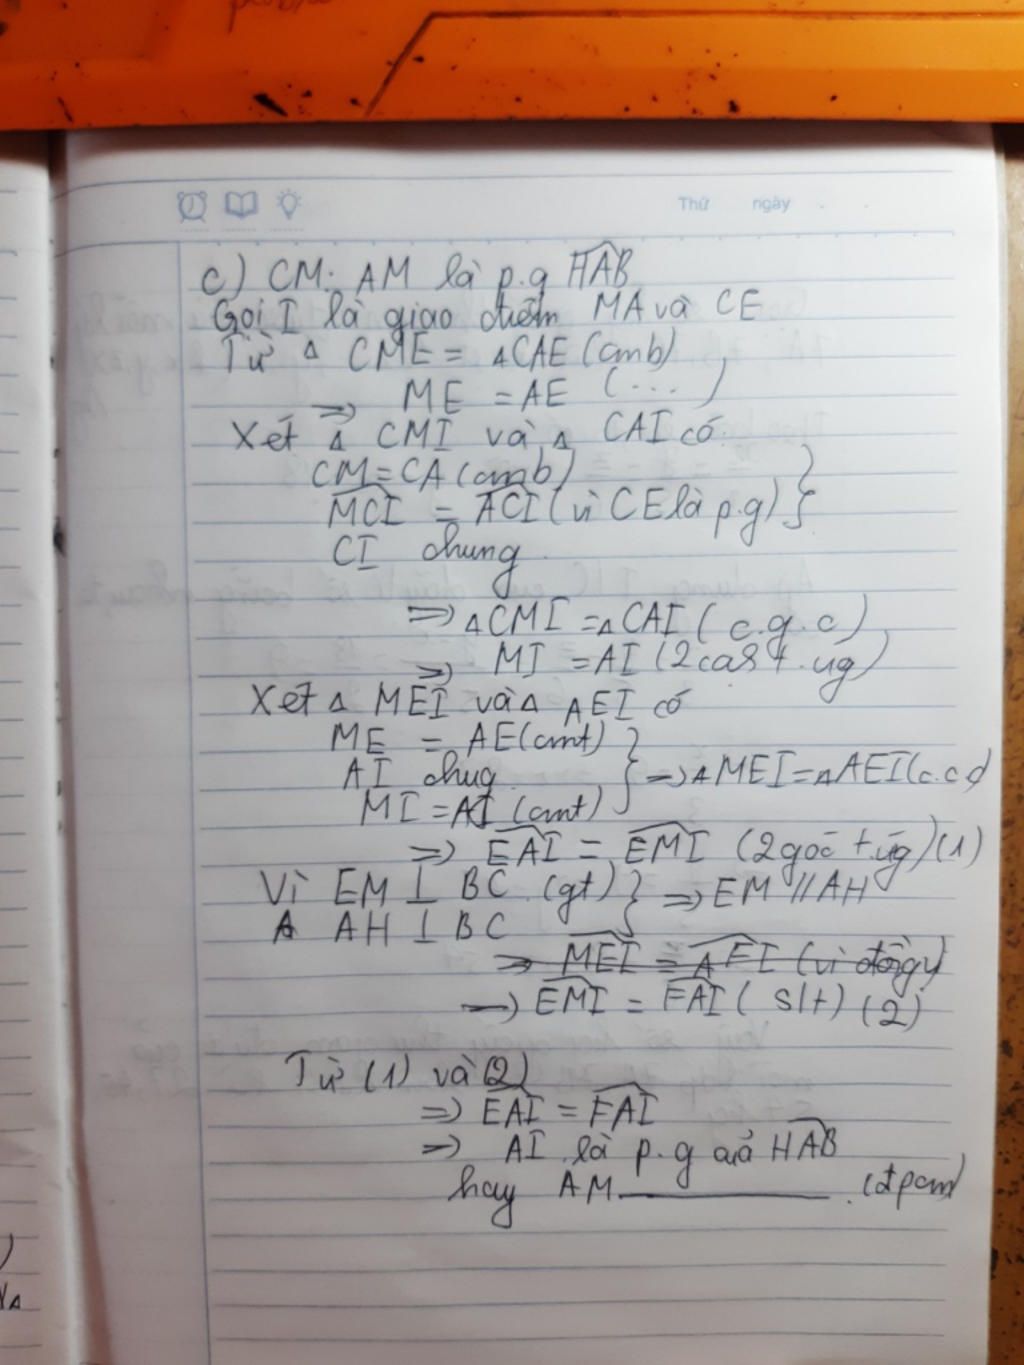 Thứ ngày
c) CM: AM là p.g HAB
Gọi I là giao điểm MA và CE
Từ Δ CME = ΔCAE (cmb)
=> ME = AE (...)
Xét Δ CMI và Δ CAI có:
CM = CA (cmb)
MCI = ACI (vì CE là p.g) }
CI chung
=> ΔCMI = ΔCAI ( c.g.c)
=> MI = AI (2 cạnh t.ứg)
Xét Δ MEI và Δ AEI có
ME = AE (cmt)
AI chug } => ΔMEI = ΔAEI (c.c.c)
MI = AI (cmt)
=> EAI = EMI (2 góc t.ứg) (1)
Vì EM ⊥ BC (gt) } => EM // AH
A AH ⊥ BC
=> MEI = AFI (vì đồng v)
=> EMI = FAI ( slt) (2)
Từ (1) và (2)
=> EAI = FAI
=> AI là p.g của HAB
hay AM (đpcm)